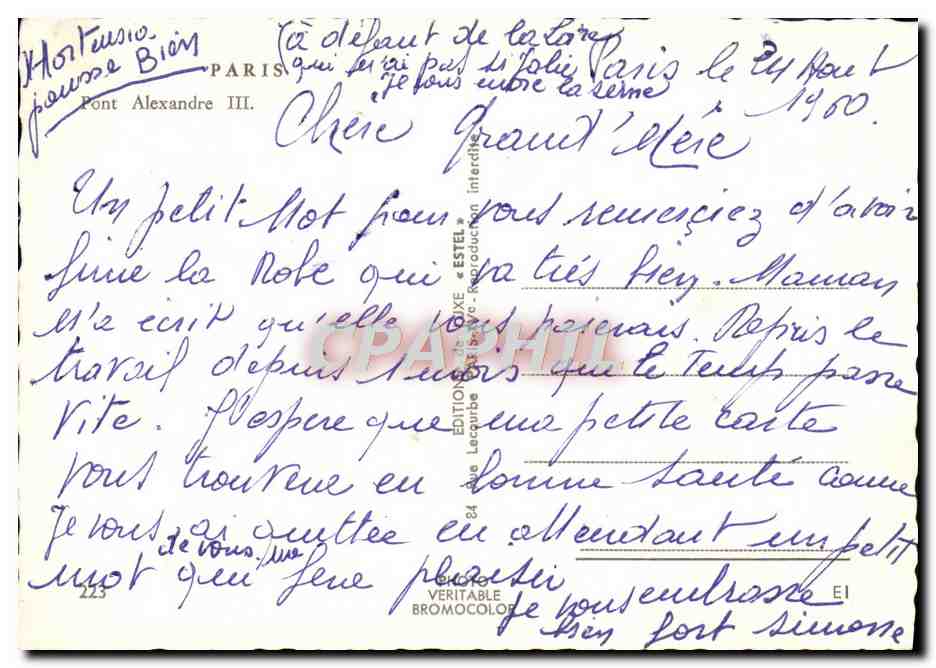 Hortensia
pousse Bien
(à défaut de la Loire
qui n'ai pas si jolie
Je vous envoie la seine
PARIS
Pont Alexandre III.
Paris le 24 Aout
1960.
Chère Grand'Mère
Un petit Mot pour vous remerciez d'avoir
finie la Robe qui va très bien. Maman
M'a écrit qu'elle vous paserais. Repris le
travail depuis 1 mois que le Temps passe
Vite. J'espere que ma petite carte
vous trouvera en bonne santé comme
Je vous ai quittée en attendant un petit
de vous me
mot qui fera plaisir
Je vous embrasse
bien fort Simone
EDITIONS de LUXE « ESTEL »
84 Rue Lecourbe PARIS - Reproduction interdite
CPAPHIL
223
PHOTO
VERITABLE
BROMOCOLOR
EI